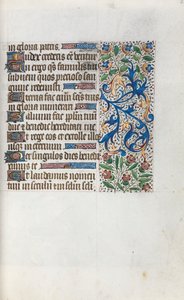 in gloria patris.
Iudex crederis esse ventur
Te ergo quesumus famulis tuis
subveni quos precioso san
guine redemisti.
Eterna fac cum sanctis tuis
in gloria numerari
Salvum fac populum tuum
domine et benedic hereditati tue
Et rege eos et extolle illos
usque in eternum.
Per singulos dies benedi
cimus te
Et laudamus nomen
tuum in seculum et in seculum seculi